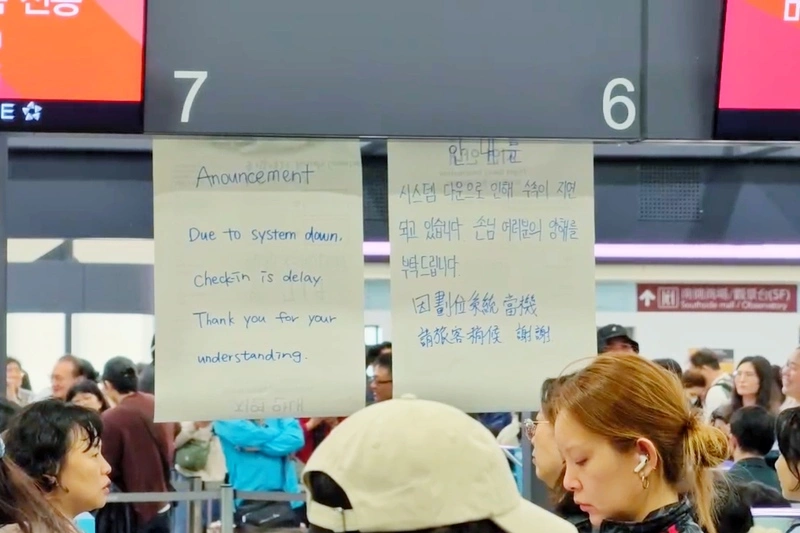 7
6
Anouncement
Due to system down.
Check-in is delay
Thank you for your
understanding.
안내문
시스템 다운으로 인해 수속이 지연
되고 있습니다. 손님 여러분의 양해를
부탁드립니다.
因劃位系統當機
請旅客稍候 謝謝
南側商場/觀景台(5F)
Southside mall / Observatory